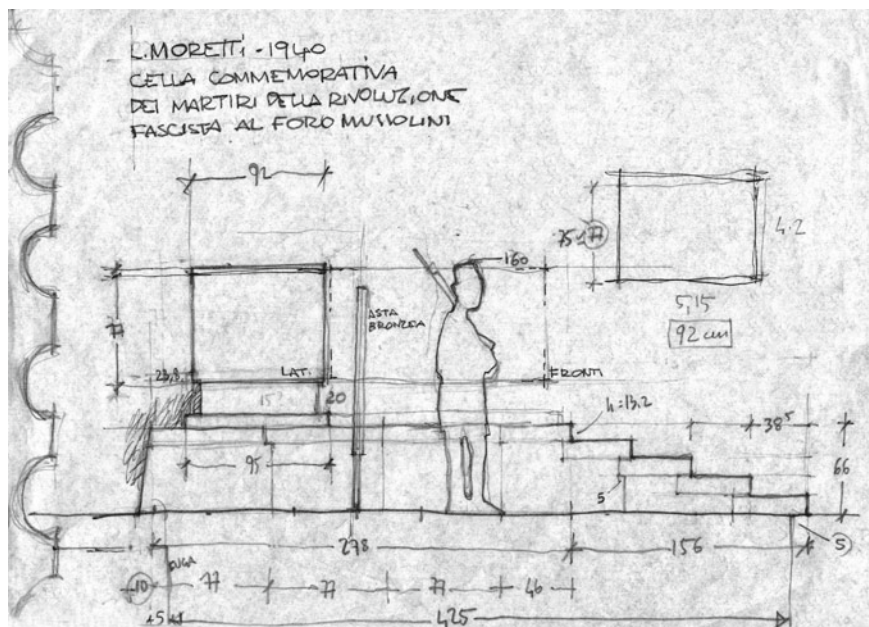 L. MORETTI - 1940
CELLA COMMEMORATIVA
DEI MARTIRI DELLA RIVOLUZIONE
FASCISTA AL FORO MUSSOLINI
92
77
4.2
160
5,15
92 cm
ASTA
BRONZEA
77
23,8
LAT.
FRONTI
15
20
h=13.2
38⁵
95
66
5
298
156
5
FUGA
10
77
77
77
46
+5
425